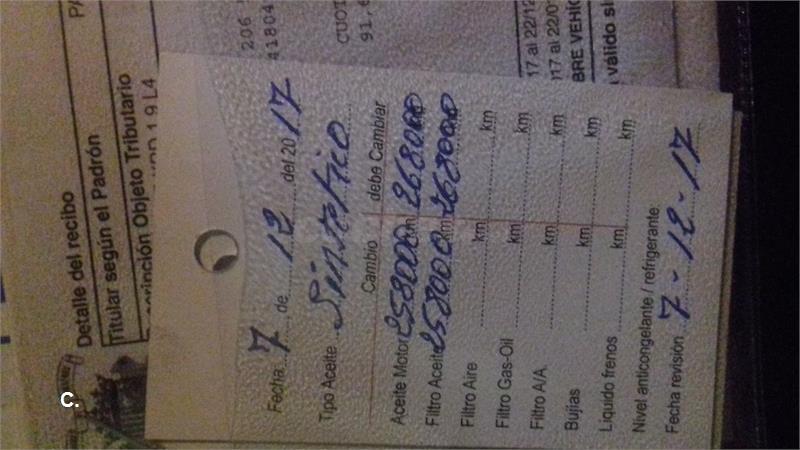 C.
Detalle del recibo
Titular según el Padrón
cripción Objeto Tributario
1.9 L4
206
41804
CUOT
91,6
17 al 22/12
017 al 22/0
BRE VEHÍC
válido si
Fecha 7 de 12 del 2017
Tipo Aceite Sintetico
Cambio debe Cambiar
Aceite Motor 258000 km 268000
Filtro Aceite 258000 km 268000
Filtro Aire km km
Filtro Gas-Oil km km
Filtro A/A km km
Bujias km km
Liquido frenos km km
Nivel anticongelante / refrigerante:
Fecha revisión 7-12-17